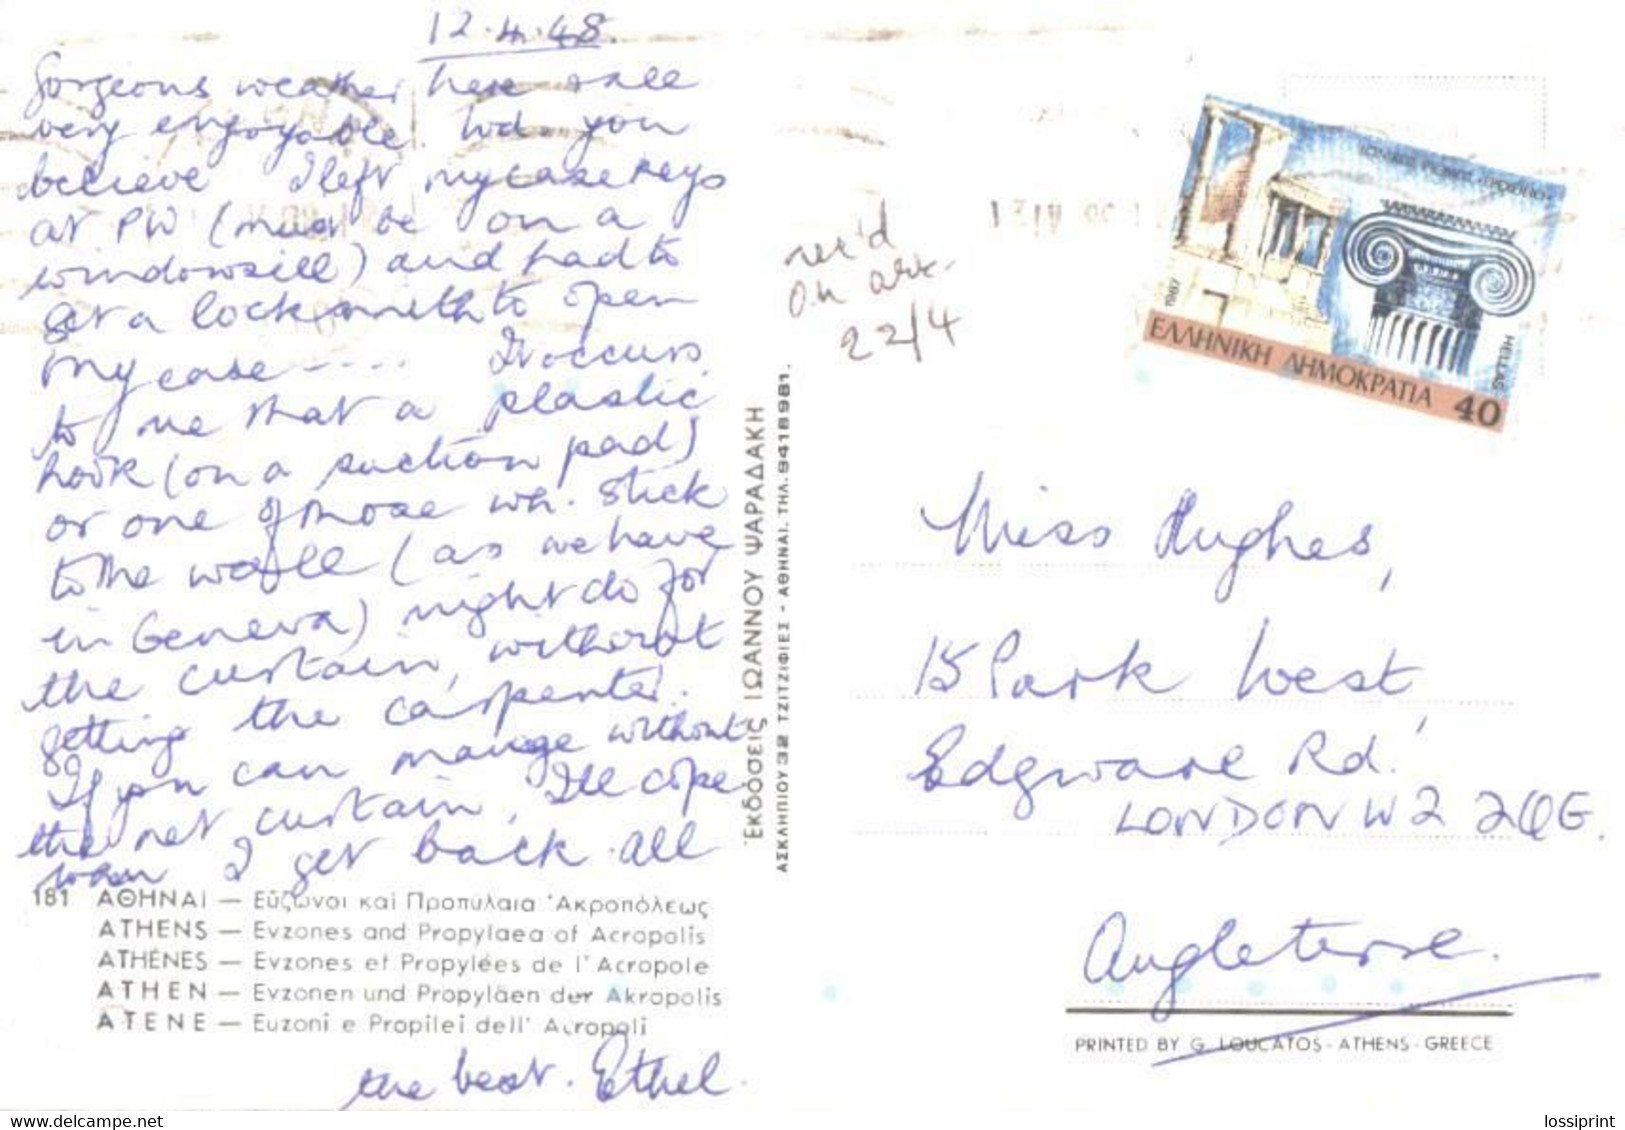 12.4.48.
Gorgeous weather here & all
very enjoyable. Wd. you
believe I left my case keys
at PW (must be on a
windowsill) and had to
get a locksmith to open
my case .... It occurs
to me that a plastic
hook (on a suction pad)
or one of those wh. stick
to the wall (as we have
in Geneva) might do for
the curtain, without
getting the carpenter.
If you can manage without
the net curtain, I'll cope
when I get back. All
the best. Ethel.
181 ΑΘΗΝΑΙ — Εὔζωνοι καί Προπύλαια Ἀκροπόλεως
ATHENS — Evzones and Propylaea of Acropolis
ATHÈNES — Evzones et Propylées de l'Acropole
ATHEN — Evzonen und Propyläen der Akropolis
ATENE — Euzoni e Propilei dell' Acropoli
ἘΚΔΟΣΕΙΣ ΙΩΑΝΝΟΥ ΨΑΡΑΔΑΚΗ
ΑΣΚΛΗΠΙΟΥ 32 ΤΖΙΤΖΙΦΙΕΣ - ΑΘΗΝΑΙ. ΤΗΛ. 9418981.
rec'd
on
22/4
1987
HELLAS
ΕΛΛΗΝΙΚΗ ΔΗΜΟΚΡΑΤΙΑ 40
Miss Hughes,
15 Park West,
Edgware Rd.
LONDON W2 2QG.
Angleterre.
PRINTED BY G. LOUCATOS - ATHENS - GREECE
lossiprint